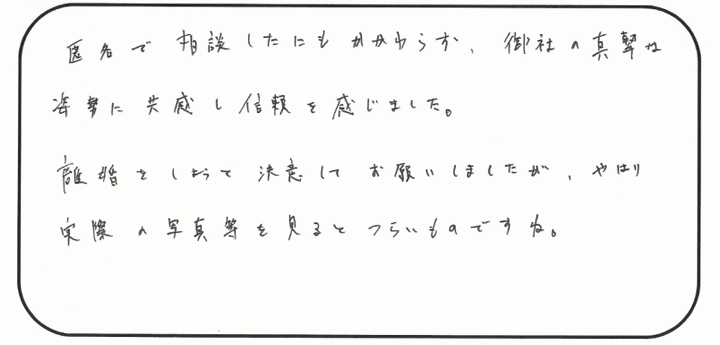 匿名で相談したにもかかわらず、御社の真摯な
姿勢に共感し信頼を感じました。
離婚をしようと決意してお願いしましたが、やはり
実際の写真等を見るとつらいものですね。